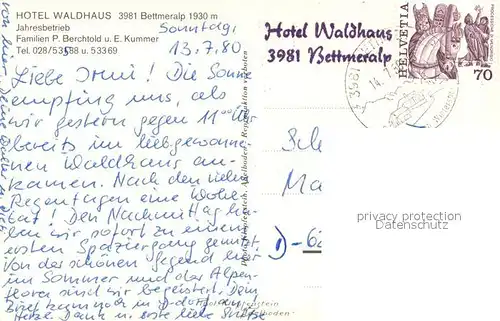 HOTEL WALDHAUS 3981 Bettmeralp 1930 m
Jahresbetrieb
Familien P. Berchtold u. E. Kummer
Tel. 028/53588 u. 53369
Sonntag,
13.7.80
Liebe Irmi! Die Sonne
empfing uns, als
wir gestern gegen 11°° Uhr
bereits im liebgewonne-
nen Waldhaus an-
kamen. Nach den vielen
Regentagen eine Wohl-
tat! Den Nachmittag ha-
ben wir sofort zu einem
ersten Spaziergang genutzt.
Von der schönen Gegend hier
im Sommer und der Alpen-
flora sind wir begeistert. Dein
Brief kam noch in D-dorf an.
Herzl. Dank u. erste liebe Grüsse
von hier, deine
Hotel Waldhaus
3981 Bettmeralp
HELVETIA
70
3981
14.7.
Sch
Ma
D-6
privacy protection